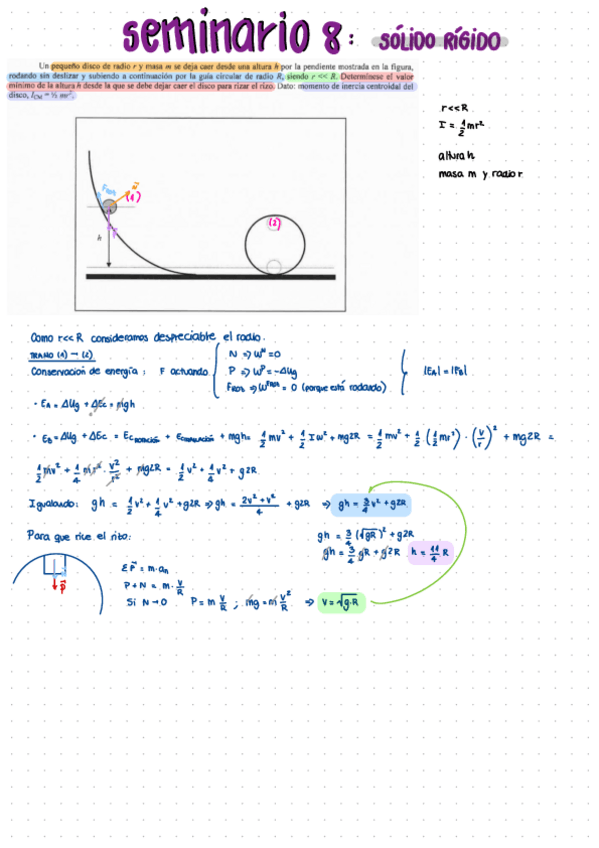 seminario 8: SÓLIDO RÍGIDO
Un pequeño disco de radio r y masa m se deja caer desde una altura h por la pendiente mostrada en la figura,
rodando sin deslizar y subiendo a continuación por la guía circular de radio R, siendo r << R. Determínese el valor
mínimo de la altura h desde la que se debe dejar caer el disco para rizar el rizo. Dato: momento de inercia centroidal del
disco, I_CM = ½ mr².
r<<R
I = 1/2 mr²
altura h
masa m y radio r
F_ROZ
N
(1)
P
h
(2)
Como r<<R consideramos despreciable el radio.
TRAMO (1) → (2)
Conservación de energía; F actuando
N => W^N = 0
P => W^P = -ΔUg
F_ROZ => W^FROZ = 0 (porque está rodando).
|E_A| = |E_B|
· E_A = ΔUg + ΔEc = mgh
· E_B = ΔUg + ΔEc = Ec_ROTACIÓN + Ec_TRASLACIÓN + mgh = 1/2 mv² + 1/2 Iω² + mg2R = 1/2 mv² + 1/2 (1/2 mr²) · (v/r)² + mg2R =
1/2 mv² + 1/4 mr² · v²/r² + mg2R = 1/2 v² + 1/4 v² + g2R
Igualando: gh = 1/2 v² + 1/4 v² + g2R => gh = 2v² + v²/4 + g2R => gh = 3/4 v² + g2R
Para que rice el rizo:
gh = 3/4 (√gR)² + g2R
gh = 3/4 gR + g2R h = 11/4 R
P
ΣF = m·an
P + N = m · v/R
Si N → 0 P = m v/R ; mg = m v²/R => v = √g·R